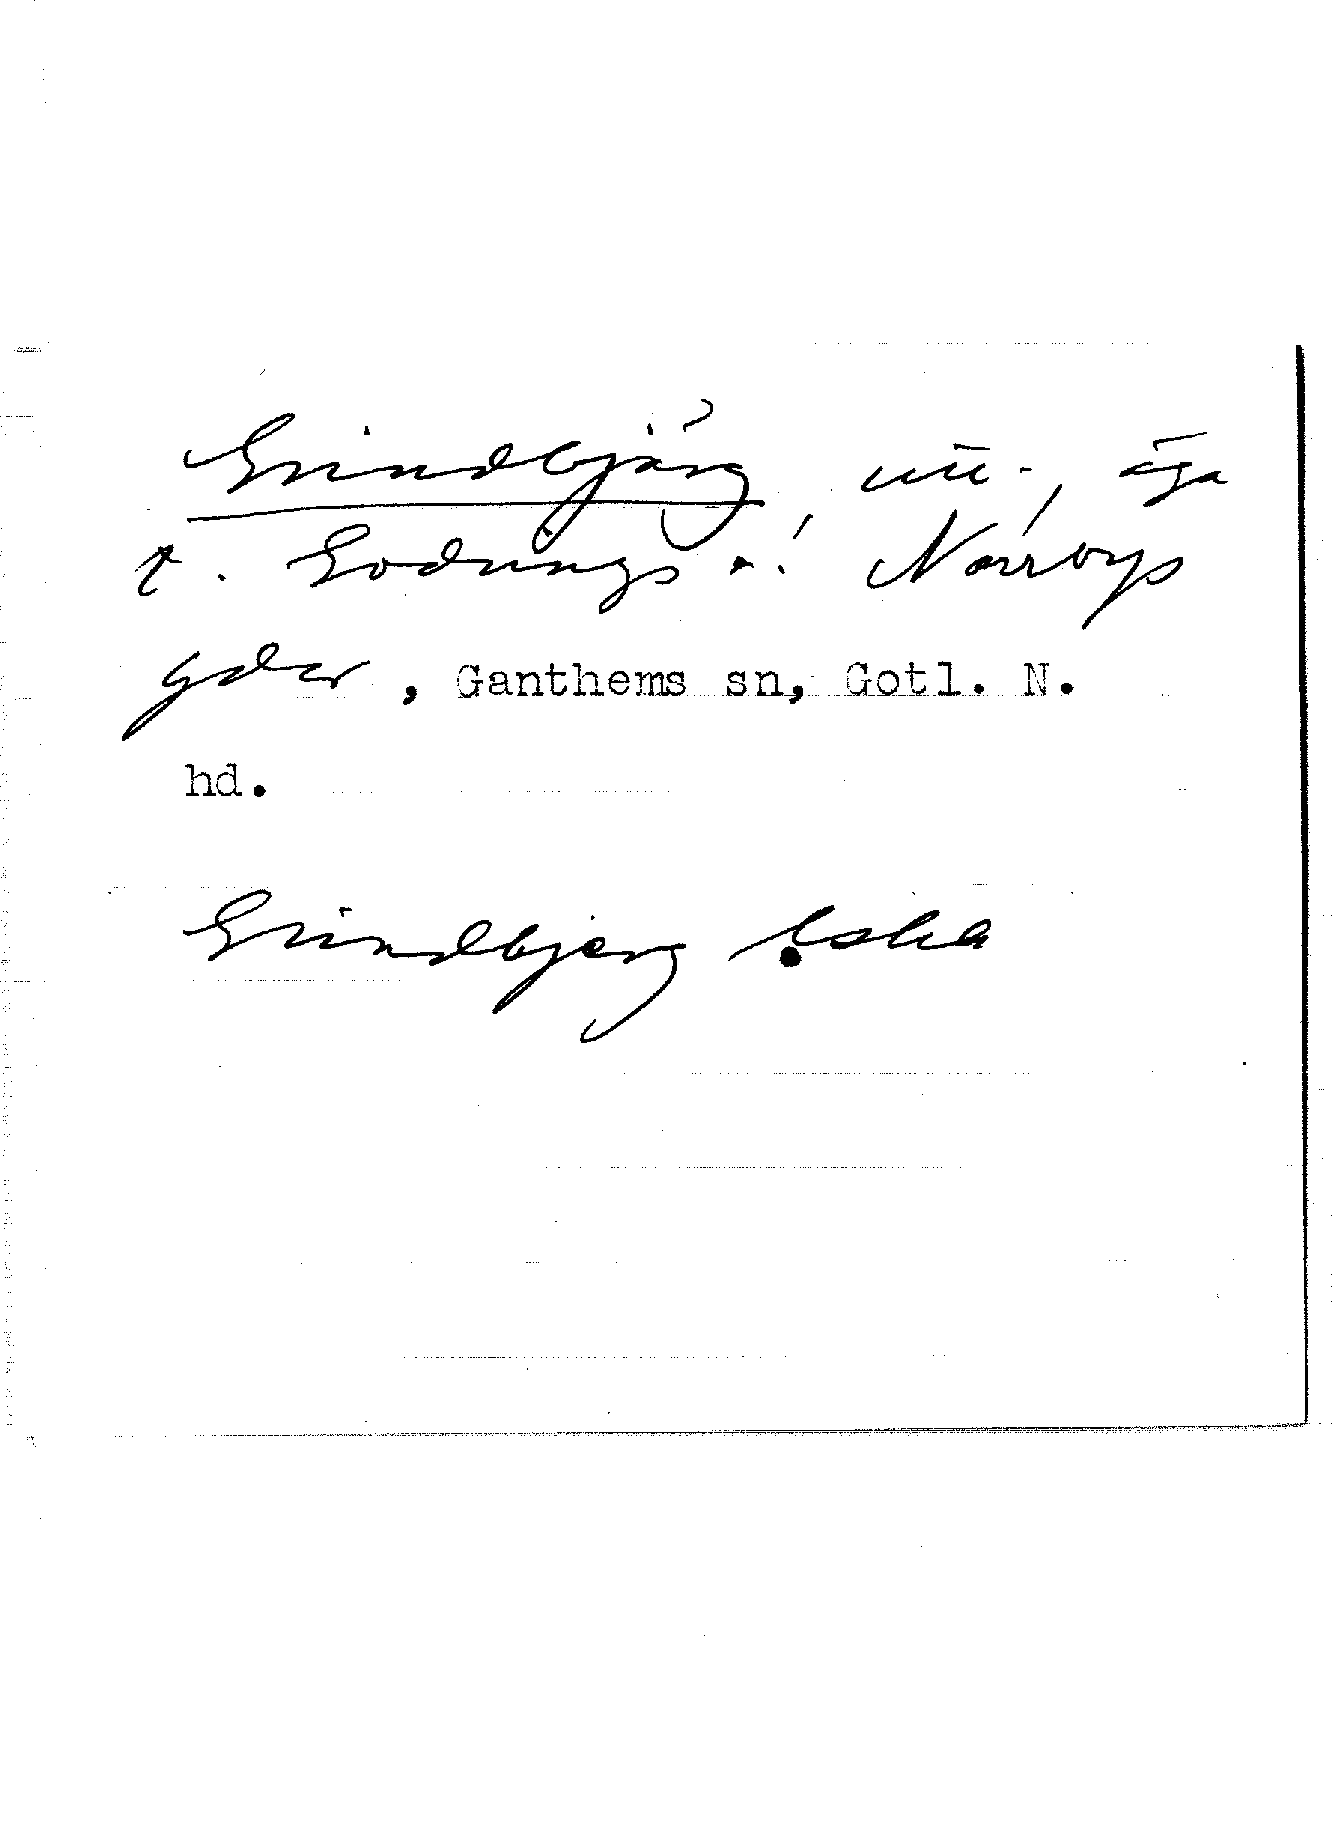 Grindbjärg, åga
t. Godrings o. Norrbys
gdar, Ganthems sn, Gotl. N.
hd.
Grindbjerg